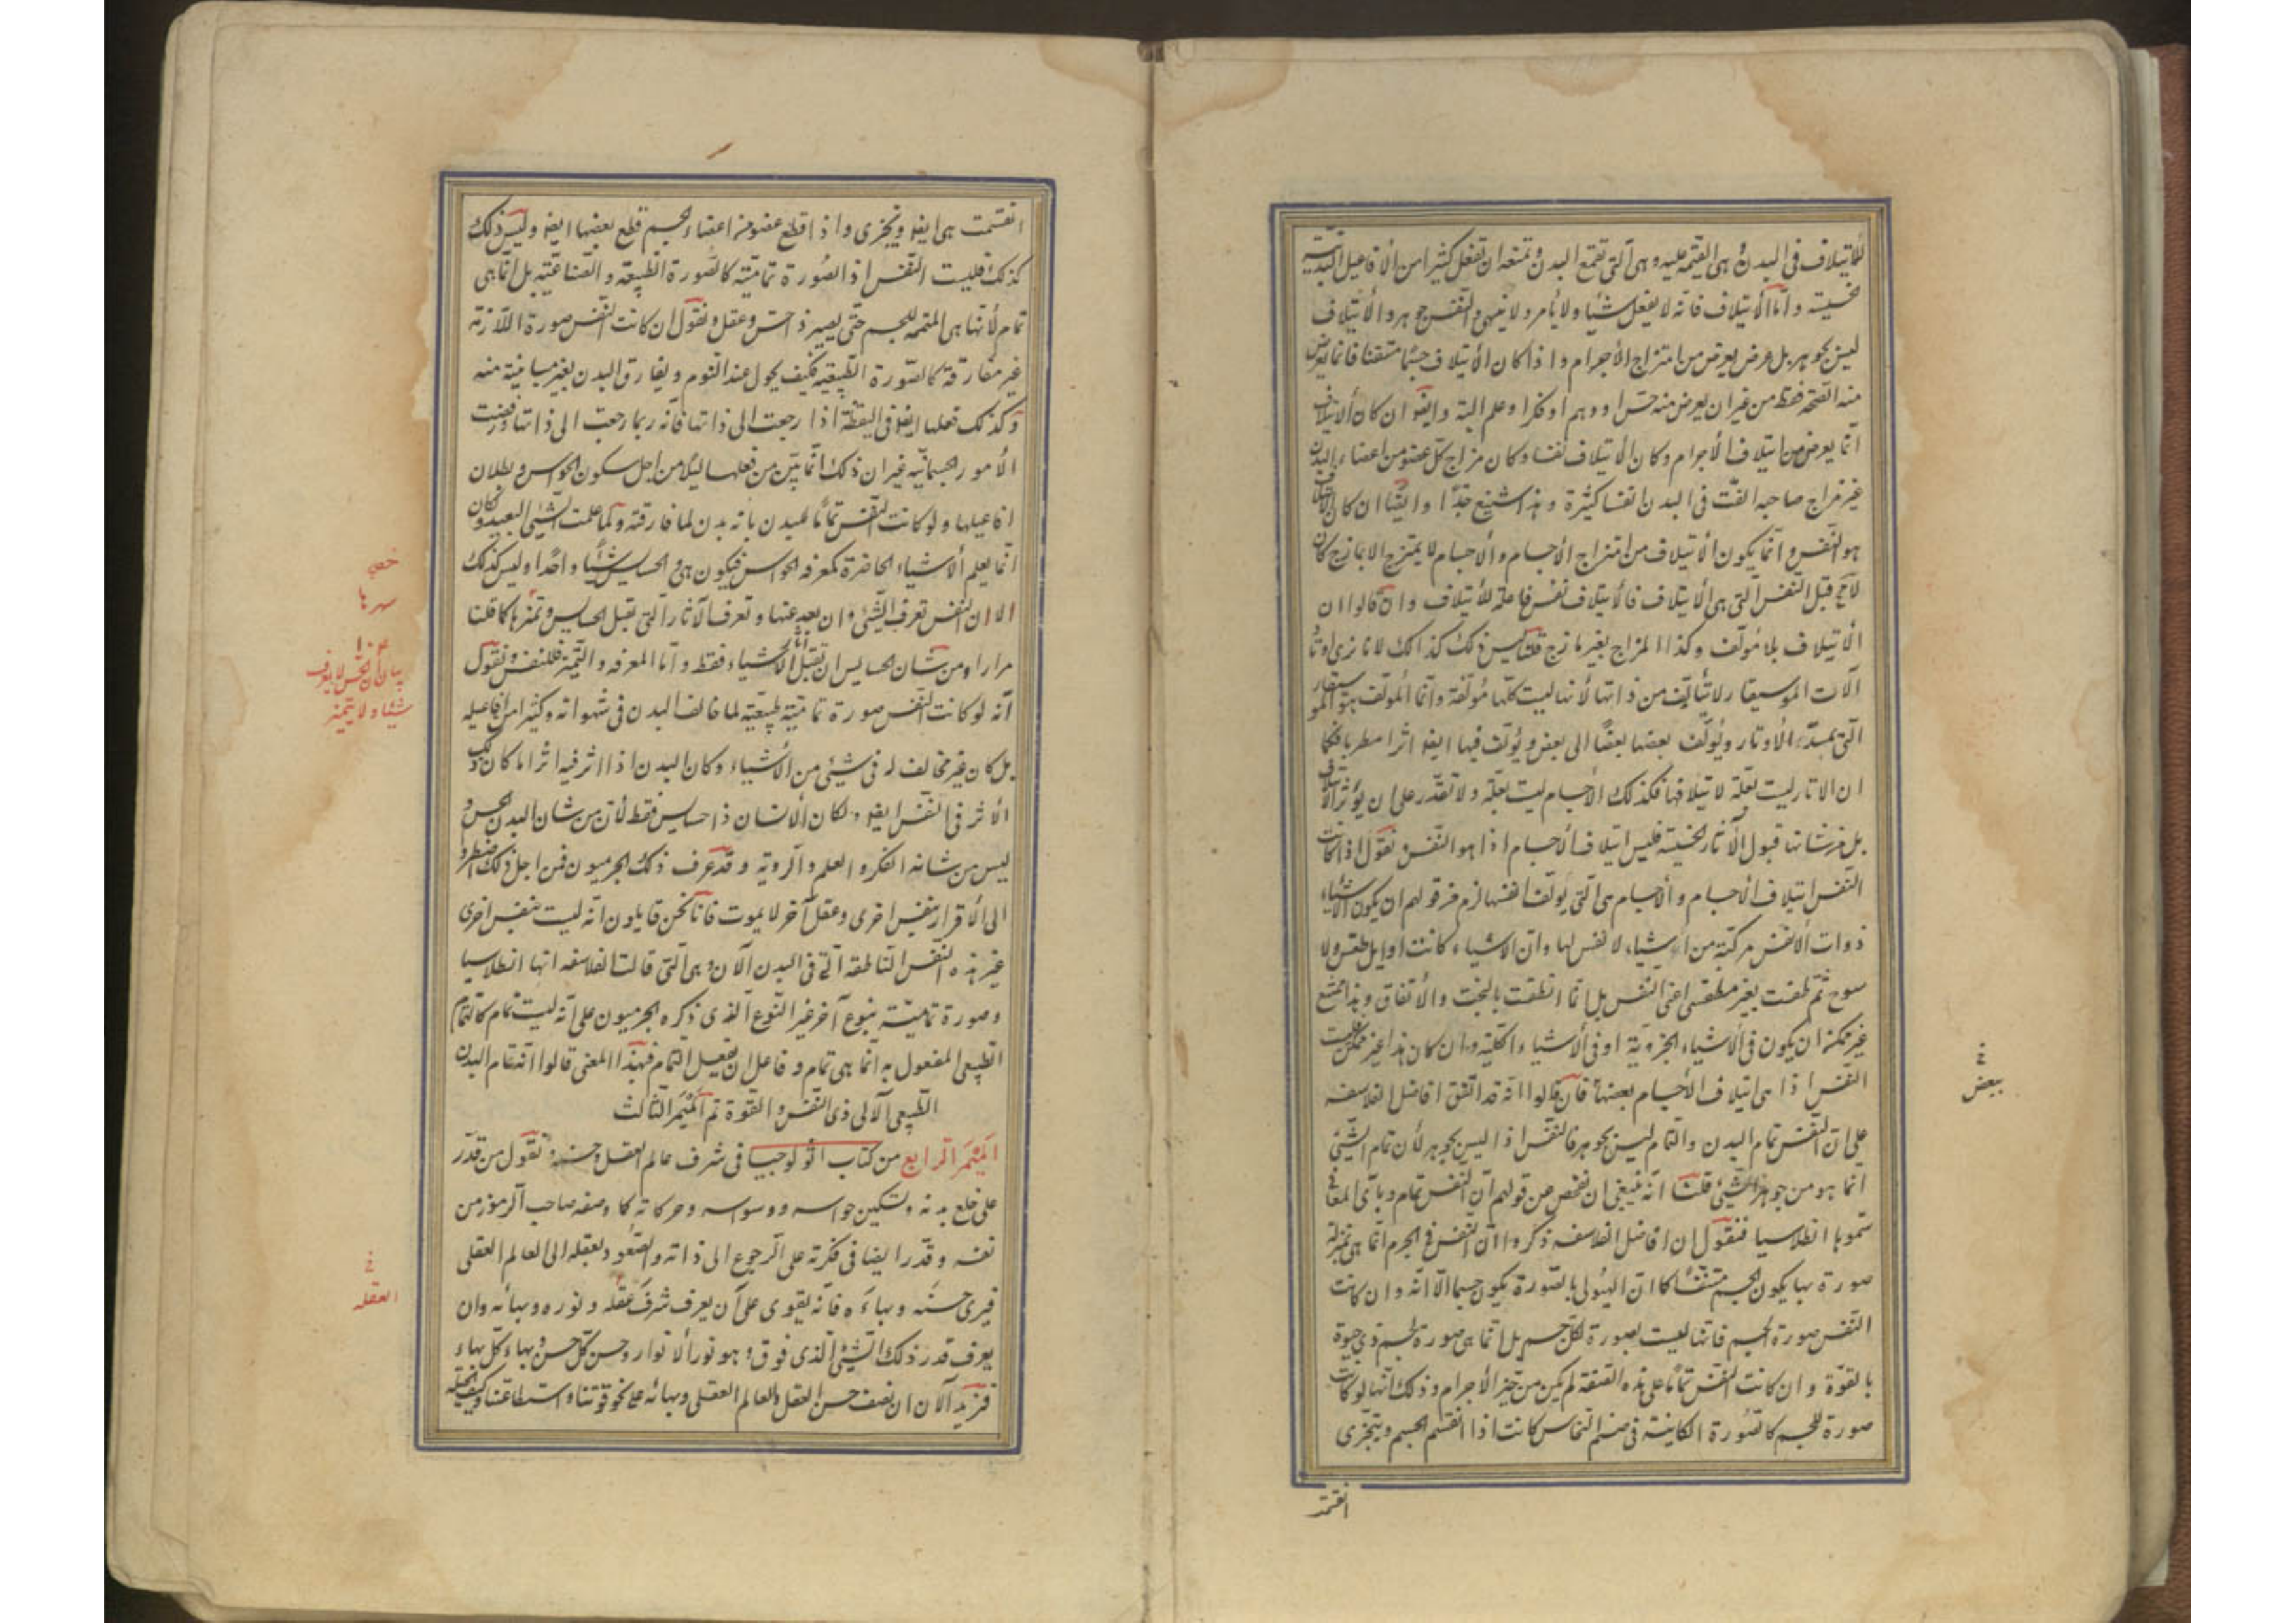 للأيتلاف فى البدن وهى القيمة عليه وهى التى تقمع البدن وتمنعه ان تفعل كثيرا من الأفاعيل البدنية
الحسية واما الأيتلاف فانه لا يفعل شيئا ولا يأمر ولا ينهى والنفس جوهر والأيتلاف
ليس بجوهر بل عرض يعرض من امتزاج الأجرام واذا كان الأيتلاف حسنا متقنا فانما يعرض
منه الصحة فقط من غير ان يعرض منه حس او وهم او فكر او علم البتة وايضا ان كان الأيتلاف
انما يعرض من ايتلاف الأجرام وكان الأيتلاف نفسا وكان مزاج كل عضو من اعضاء البدن
غير مزاج صاحبه الفت فى البدن انفسا كثيرة وهذا شنيع جدا وايضا ان كان الأيتلاف
هو النفس وانما يكون الأيتلاف من امتزاج الأجسام والأجسام لا يمتزج الا بمازج كان
لا مح قبل النفس التى هى الأيتلاف فالأيتلاف نفس فاعلة للأيتلاف وان قالوا ان
الأيتلاف بلا مؤلف وكذا المزاج بغير مازج قلنا ليس ذلك كذالك لانا نرى اوتار
آلات الموسيقار لا تتألف من ذاتها لأنها ليست كلها مؤلفة وانما المؤلف هو الموسيقار
الذى يمد الأوتار ويؤلف بعضها بعضا الى بعض ويؤلف فيها ايضا اثرا مطربا فكما
ان الاتار ليست بعلة لايتلافها فكذلك الأجسام ليست بعلة ولا تقدر على ان يؤثر الأيتلاف
بل من شانها قبول الآثار الحسية فليس ايتلاف الأجسام اذا هو النفس ونقول اذا كانت
النفس ايتلاف الأجسام والأجسام هى التى يؤلف انفسها لزم من قولهم ان يكون الأشياء
ذوات الانفس مركبة من أشياء لا نفس لها وان الاشياء كانت اوايل بلا طقس ولا
سوح ثم طقست بغير مطقس اعنى النفس بل انما انطقت بالبخت والأتفاق وهذا ممتنع
غير ممكن ان يكون فى الأشياء الجزوية او فى الأشياء الكلية وان كان هذا غير ممكن فليست
النفس اذا هى ايتلاف الأجسام بعضها فان قالوا انه قد اتفق افاضل الفلاسفة
على ان النفس تمام البدن والتمام ليس بجوهر فالنفس اذا ليس بجوهر لأن تمام الشئ
انما هو من جوهر الشئ قلنا انه ينبغى ان نفحص عن قولهم ان النفس تمام وبأى المعانى
سموها انطلاسيا فنقول ان افاضل الفلاسفة ذكروا ان النفس فى الجرم انما هى بمنزلة
صورة بها يكون الجسم متنفسا كما ان الهيولى بالصورة يكون جسما الا انه وان كانت
النفس صورة الجسم فانها ليست بصورة لكل جسم بل انما هى صورة لجسم ذى حيوة
بالقوة وان كانت النفس تماما على هذه الصفة لم يكن من حيز الأجرام وذلك انها لو كانت
صورة للجسم كالصورة الكاينة فى صنم النحاس كانت اذا انقسم الجسم ويتجزى
انقسمت
خ
ببعض
انقسمت هى ايضا وتجزى واذا قطع عضو من اعضاء الجسم قطع بعضها ايضا وليس ذلك
كذلك فليست النفس اذا صورة تمامية كالصورة الطبيعة والصناعية بل انما هى
تمام لأنها هى المتممة للجسم حتى يصير ذا حس وعقل ونقول ان كانت النفس صورة اللازمة
غير مفارقة كالصورة الطبيعية فكيف يحول عند النوم ويفارق البدن بغير مباينة منه
وكذلك فعلها ايضا فى اليقظة اذا رجعت الى ذاتها فانه ربما رجعت الى ذاتها ورفضت
الأمور الجسمانية غير ان ذلك انما يتبين من فعلها ليلا من اجل سكون الحواس وبطلان
افاعيلها ولو كانت النفس تماما للبدن بانه بدن لما فارقته ولما علمت الشئ البعيد وكان
انما يعلم الأشياء الحاضرة كمعرفة الحواس فيكون هى والحسايس شيئا واحدا وليس كذلك
الا ان النفس تعرف الشئ وان بعد عنها وتعرف الآثار التى تقبل الحسايس وتميزها كما قلنا
مرارا ومن شان الحسايس ان تقبل آثار الأشياء فقط واما المعرفة والتميز فللنفس ونقول
انه لو كانت النفس صورة تمامية طبيعية لما خالف البدن فى شهواته وكثير من افاعيله
بل كان غير مخالف له فى شيئ من الأشياء وكان البدن اذا اثر فيه اثر اما كان ذلك
الأثر فى النفس ايضا ولكان الأنسان ذا حسايس فقط لأن من شان البدن الحس و
ليس من شانه الفكر والعلم والروية وقد عرف ذلك الجرميون فمن اجل ذلك اضطروا
الى الأقرار بنفس اخرى وعقل آخر لا يموت فانا نحن قايلون انه ليست بنفس اخرى
غير هذه النفس الناطقة التى فى البدن الآن وهى التى قالت الفلاسفه انها انطلاسيا
وصورة تمامية بنوع آخر غير النوع الذى ذكره الجرميون على انه ليست تمام كالتمام
الطبيعى المفعول به انما هى تمام وفاعل ان يفعل التمام فبهذا المعنى قالوا انه تمام البدن
الطبيعى الآلى ذى النفس والقوة تم الميمر الثالث
الميمر الرابع من كتاب اثولوجيا فى شرف عالم العقل وحسنه ونقول من قدر
على خلع بدنه وتسكين حواسه ووسواسه وحركاته كما وصفه صاحب الرموز من
نفسه وقدر ايضا فى فكرته على الرجوع الى ذاته والصعود بعقله الى العالم العقلى
فيرى حسنه وبهاءه فانه يقوى على ان يعرف شرف عقله ونوره وبهائه وان
يعرف قدر ذلك الشئ الذى فوقه وهو نور الأنوار وحسن كل حسن وبهاء كل بهاء
فنريد الآن ان نصف حسن العقل والعالم العقلى وبهائه على نحو قوتنا واستطاعتنا وكيف الحيلة
بيان ان الحس لا يعرف
شيئا ولا يتميز
خ
العقلة